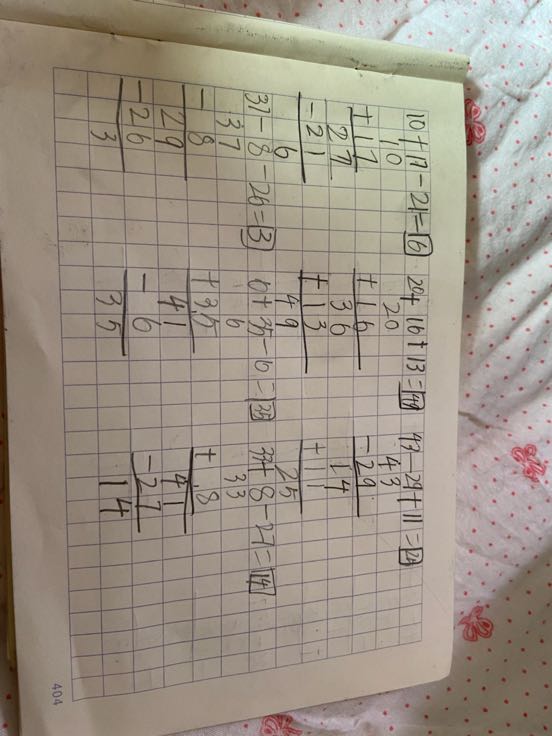 10+17-21=6 20+16+13=49 43-29+11=25
10 20 43
+17 +16 -29
27 36 14
-21 +13 +11
6 49 25
37-8-26=3 6+35-6=35 33+8-27=14
37 6 33
-8 +35 +8
29 41 41
-26 -6 -27
3 35 14
404